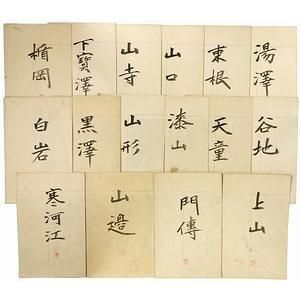 楯岡
下寳澤
山寺
山口
東根
湯澤
白岩
黒澤
山形
漆山
天童
谷地
寒河江
山邉
門傳
上山